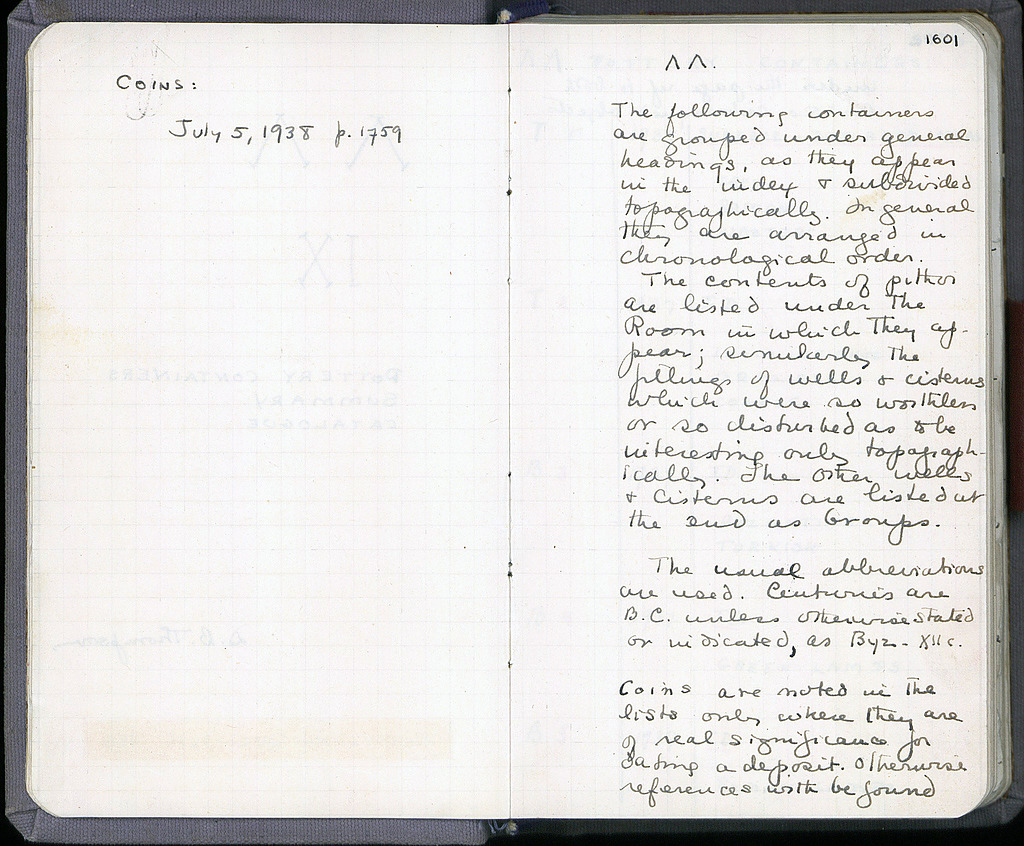 COINS:
July 5, 1938 p. 1759
1601
ΛΛ.
The following containers
are grouped under general
headings, as they appear
in the index + subdivided
topographically. In general
they are arranged in
chronological order.
The contents of pithoi
are listed under the
Room in which they ap-
pear; similarly the
fillings of wells + cisterns
which were so worthless
or so disturbed as to be
interesting only topograph-
ically. The other wells
+ Cisterns are listed at
the end as Groups.
The usual abbreviations
are used. Centuries are
B.C. unless otherwise stated
or indicated, as Byz - XII c.
Coins are noted in the
lists only where they are
of real significance for
dating a deposit. Otherwise
references with be found